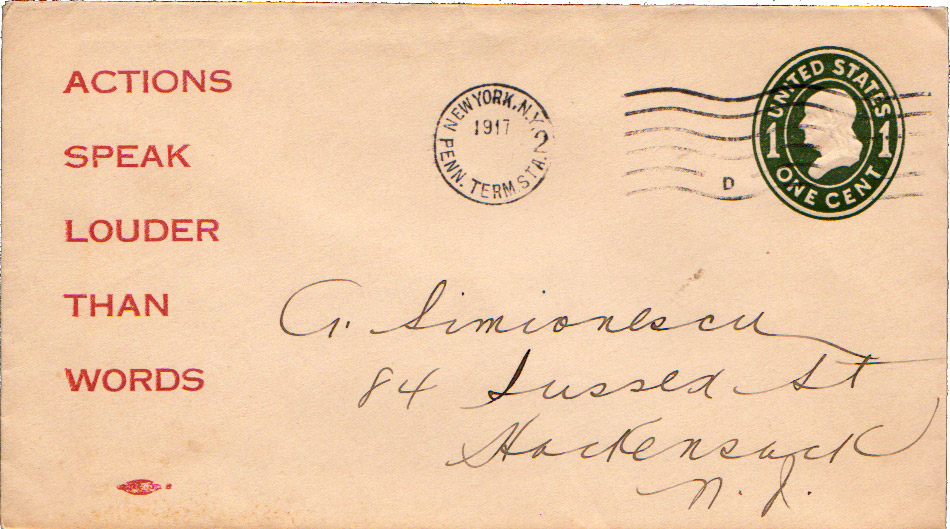 ACTIONS
SPEAK
LOUDER
THAN
WORDS
NEW YORK, N.Y. 2
1917
PENN. TERM. STA.
D
UNITED STATES
1 1
ONE CENT
G. Simionescu
84 Sussex St
Hackensack
N. J.